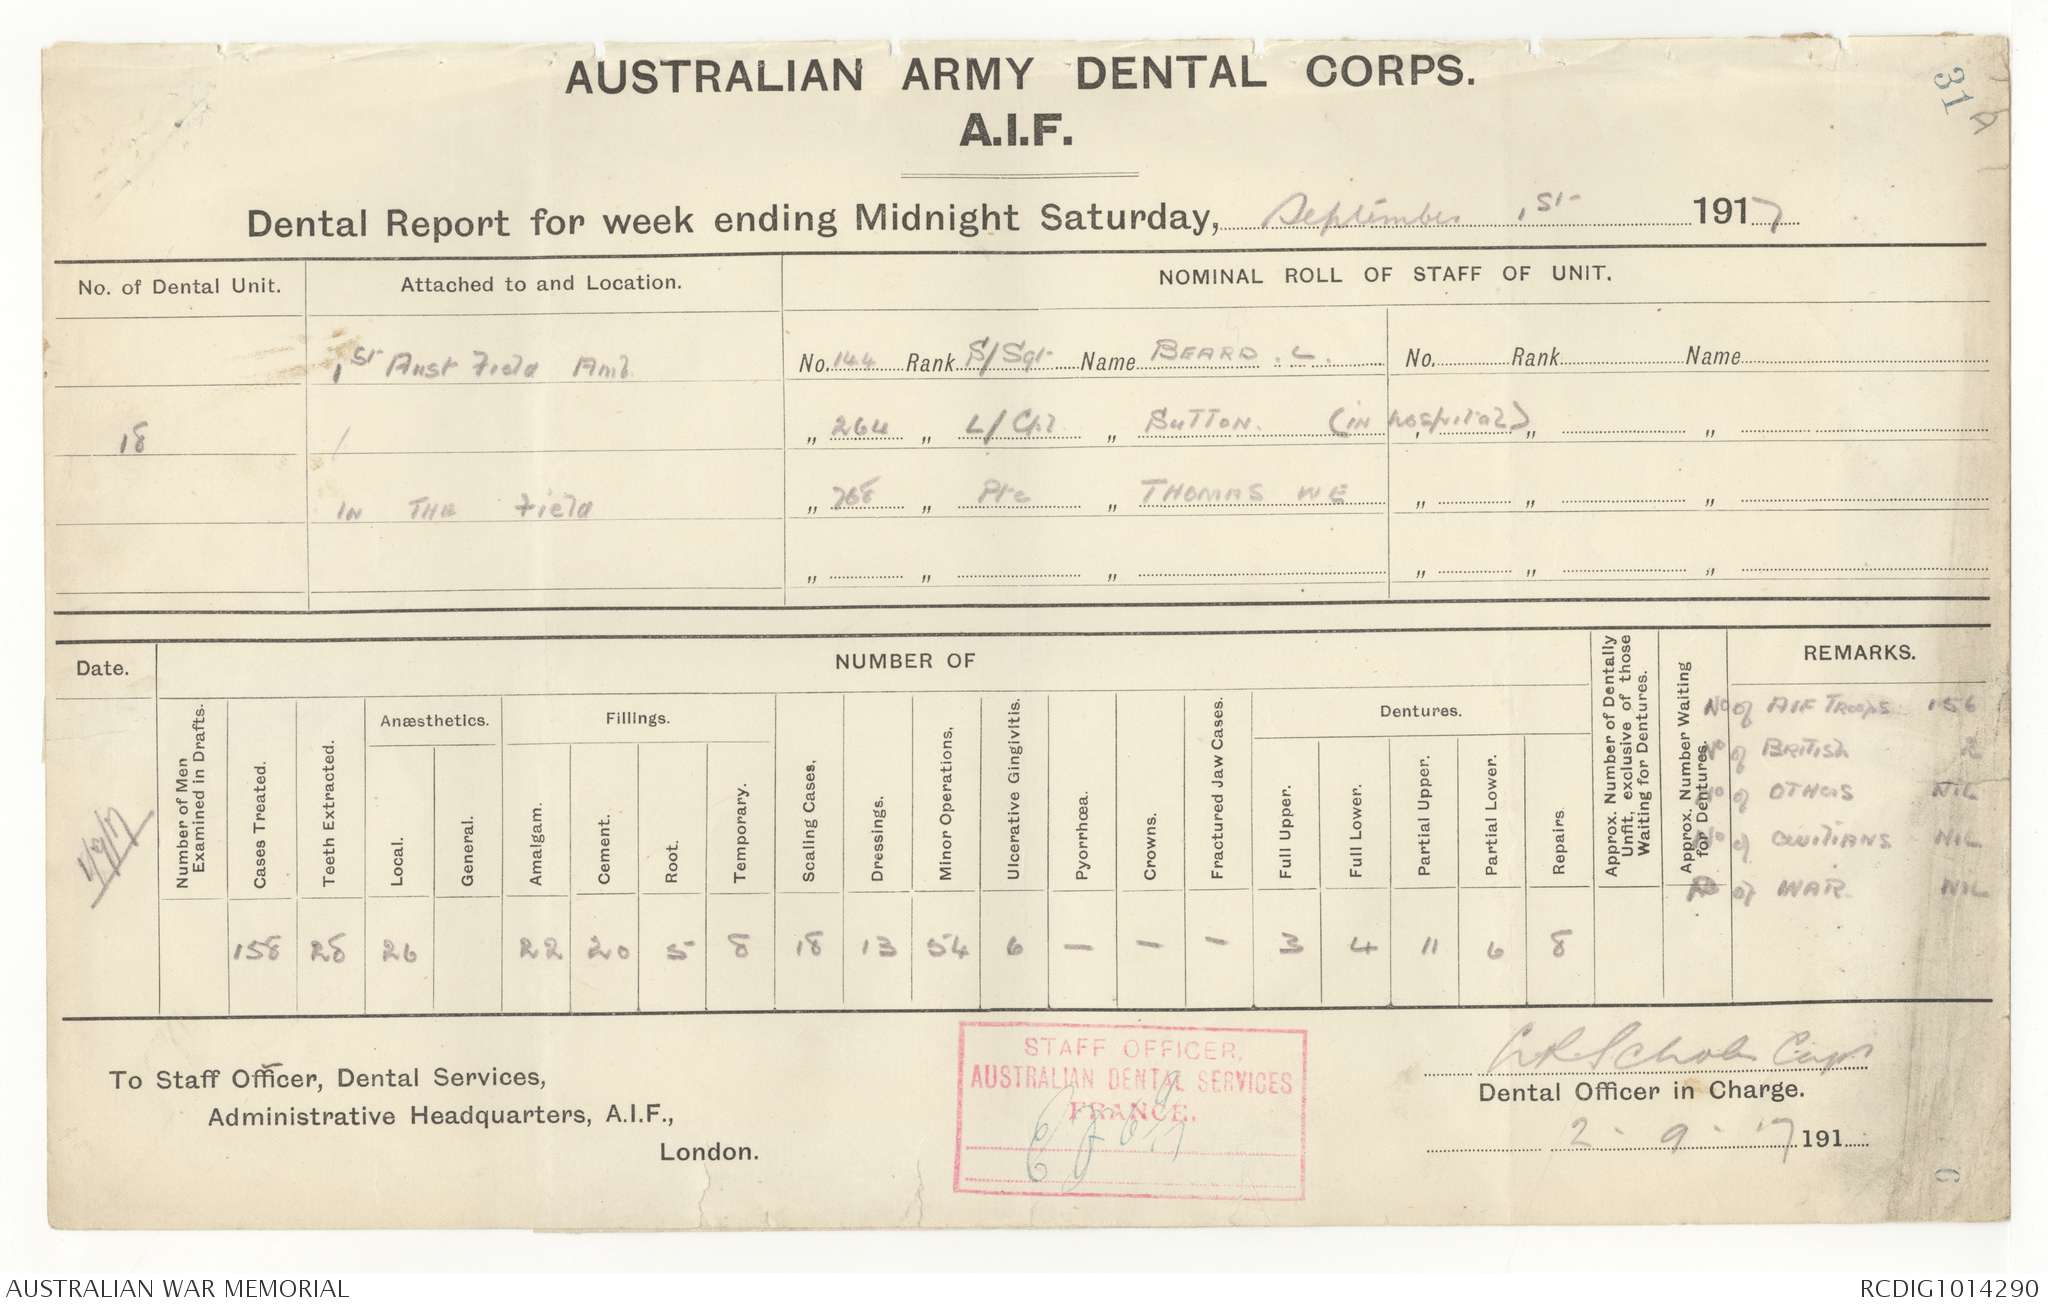 AUSTRALIAN ARMY DENTAL CORPS.
A.I.F.
31
Dental Report for week ending Midnight Saturday, September 1st 1917
No. of Dental Unit. Attached to and Location. NOMINAL ROLL OF STAFF OF UNIT.
1st Aust Field Amb No. 144 Rank S/Sgt Name BEARD. L. No. Rank Name
18 / „ 264 „ L/Cpl „ SUTTON. (in hospital) „ „ „
IN THE Field „ 768 „ Pte „ THOMAS W E „ „ „
„ „ „ „ „ „
Date. NUMBER OF REMARKS.
Number of Men Examined in Drafts.
Cases Treated.
Teeth Extracted.
Anæsthetics.
Local.
General.
Fillings.
Amalgam.
Cement.
Root.
Temporary.
Scaling Cases,
Dressings.
Minor Operations,
Ulcerative Gingivitis.
Pyorrhœa.
Crowns.
Fractured Jaw Cases.
Dentures.
Full Upper.
Full Lower.
Partial Upper.
Partial Lower.
Repairs
Approx. Number of Dentally Unfit, exclusive of those Waiting for Dentures.
Approx. Number Waiting for Dentures.
No of AIF Troops 156
No of BRITISH 2
No of OTHERS NIL
No of CIVILIANS NIL
P of WAR NIL
1/9/17
158 28 26 22 20 5 8 18 13 54 6 — — — 3 4 11 6 8
To Staff Officer, Dental Services,
Administrative Headquarters, A.I.F.,
London.
STAFF OFFICER,
AUSTRALIAN DENTAL SERVICES
FRANCE.
Capt
Dental Officer in Charge.
2 - 9 - 17 191
AUSTRALIAN WAR MEMORIAL RCDIG1014290